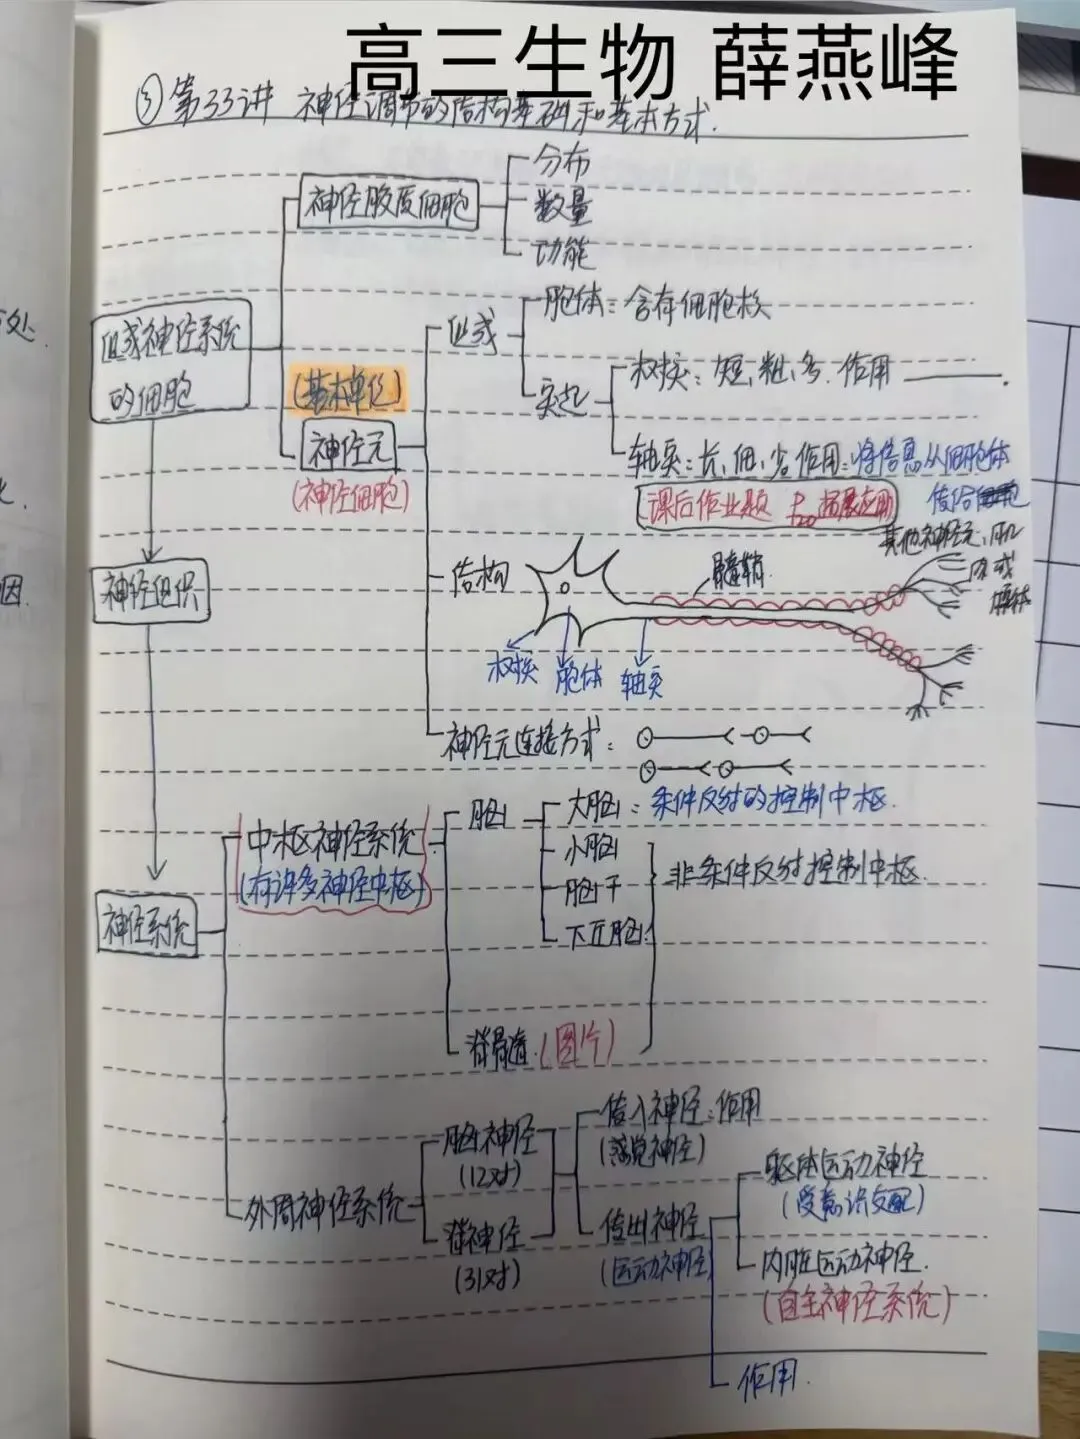 高三生物 薛燕峰
③第33讲 神经调节的结构基础和基本方式.
神经胶质细胞
分布
数量
功能
组成神经系统
的细胞
(基本单位)
神经元
(神经细胞)
组成
胞体：含有细胞核
突起
树突：短、粗、多. 作用
轴突：长、细、少 作用：将信息从细胞体
传给
其他神经元、肌
肉或
腺体
课后作业题 P20 拓展应用
神经组织
结构
髓鞘
树突 胞体 轴突
神经元连接方式：
神经系统
中枢神经系统
(有许多神经中枢)
脑
大脑：条件反射的控制中枢.
小脑
脑干
下丘脑
非条件反射控制中枢.
脊髓 (图片)
外周神经系统
脑神经
(12对)
脊神经
(31对)
传入神经：作用
(感觉神经)
传出神经
(运动神经)
躯体运动神经
(受意识支配)
内脏运动神经.
(自主神经系统)
作用.
处.
因.